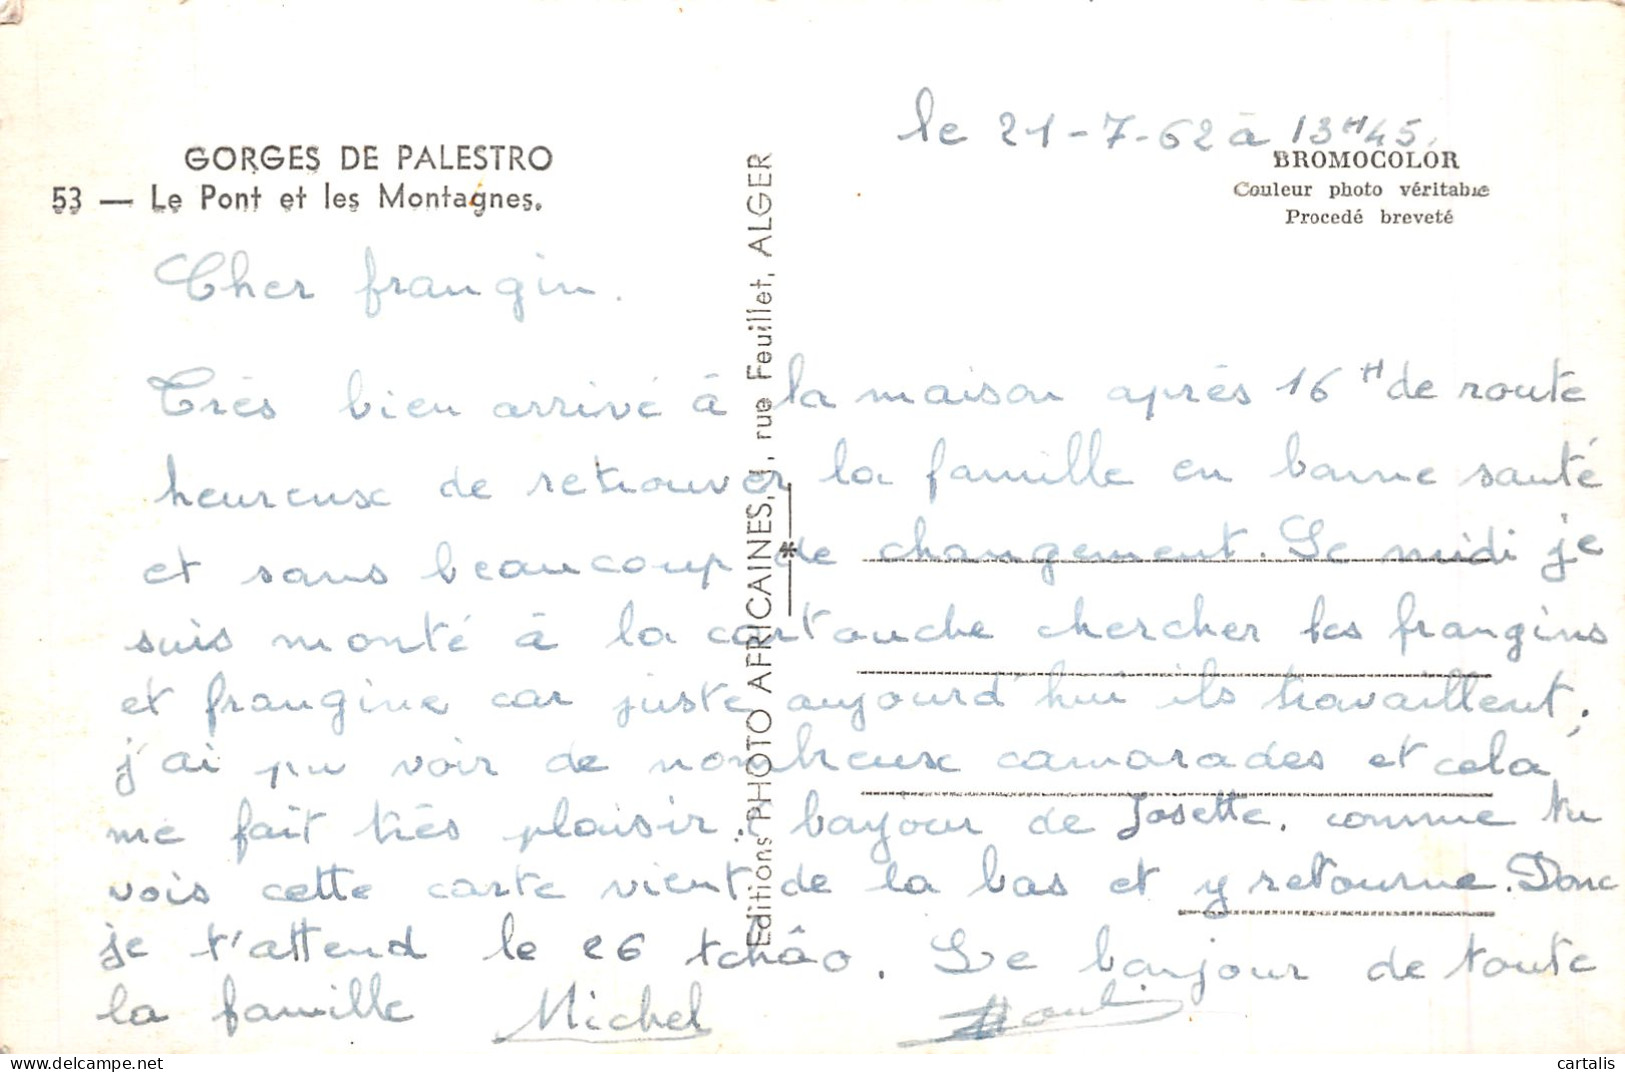 le 21-7-62 à 13H45.
GORGES DE PALESTRO
53 — Le Pont et les Montagnes.
BROMOCOLOR
Couleur photo véritable
Procedé breveté
Editions PHOTO AFRICAINES, rue Feuillet, ALGER
Cher frangin.
Très bien arrivé à la maison après 16H de route
heureux de retrouver la famille en bonne santé
et sans beaucoup de changement. Le midi je
suis monté à la cartouche chercher les frangins
et frangine car juste aujourd'hui ils travaillent.
j'ai pu voir de nombreux camarades et cela
me fait très plaisir. bonjour de Josette. comme tu
vois cette carte vient de la bas et y retourne. Donc
je t'attend le 26 tchâo. Le bonjour de toute
la famille Michel
cartalis